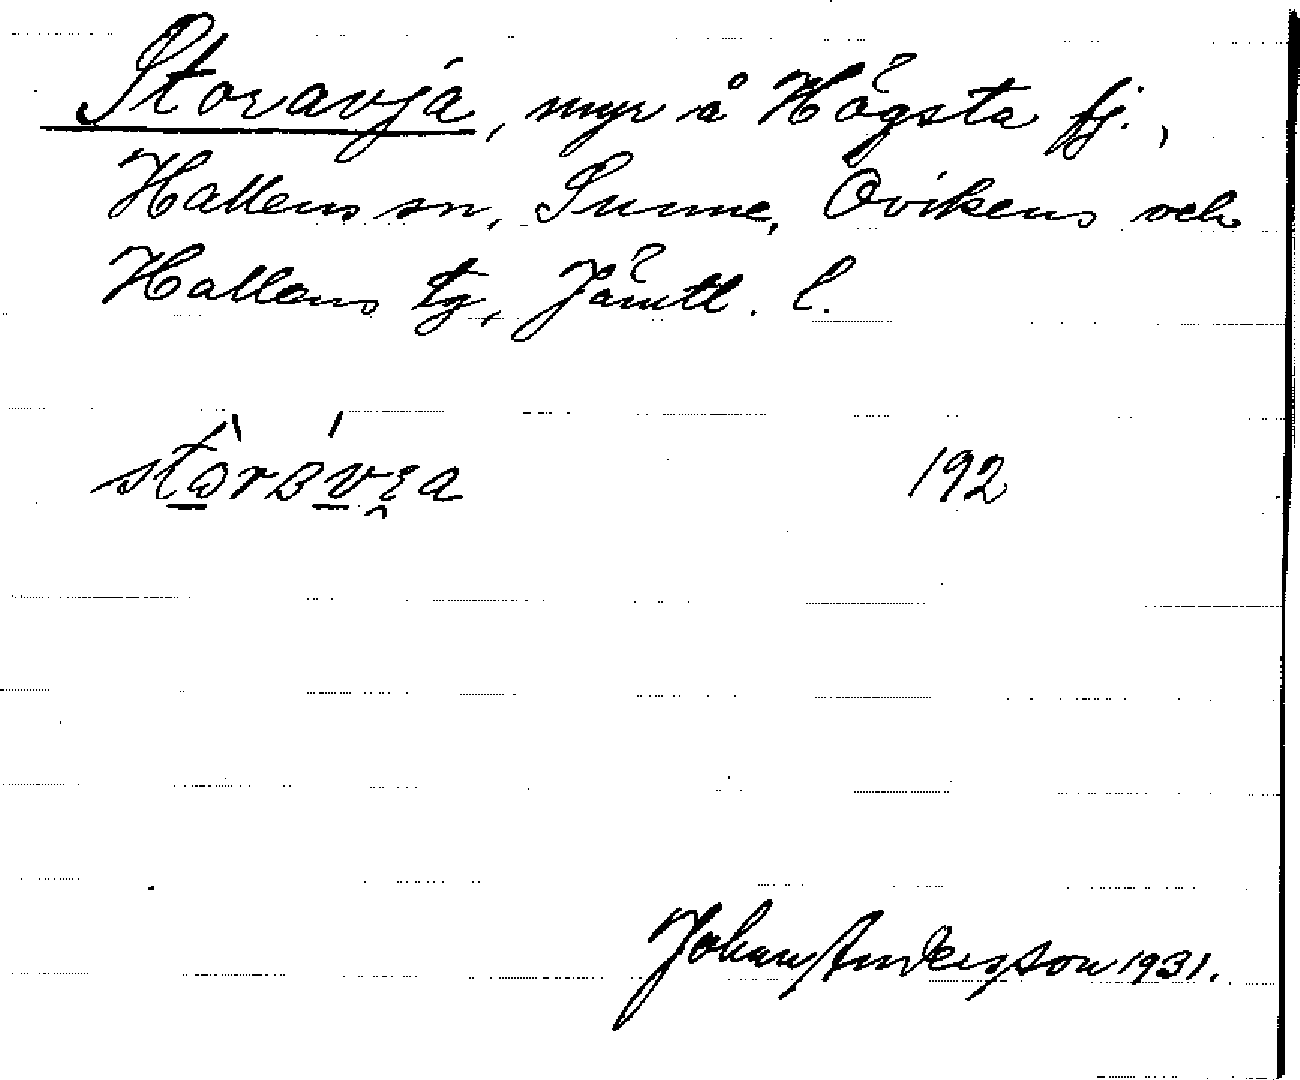 Storavjá, myr å Högsta fj.,
Hallens sn, Sunne, Ovikens och
Hallens tg, Jämtl. l.
192
Johan Anderson 1931.